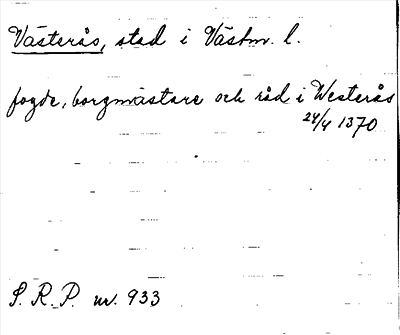 Västerås, stad i Västm. l.
fogde, borgmästare och råd i Westerås
24/4 1370
S. R. P. nr. 933